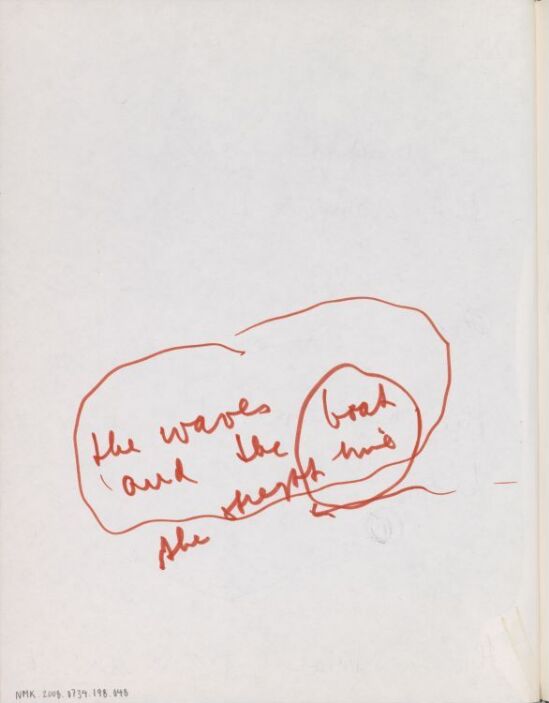 the waves boat
and the
the
NMK. 2008.0734.198.048